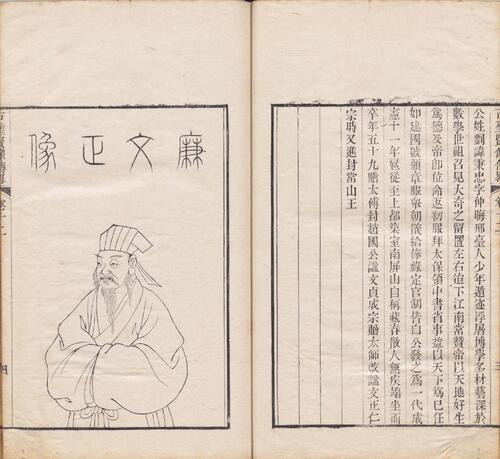 公姓劉諱秉忠字仲晦邢臺人少年遁迹浮屠博學多材藝深於
數學世祖召見大奇之留置左右迨下江南常贊帝以天地好生
為德及帝即位命返初服拜太保領中書省事益以天下為己任
如建國號頒章服舉朝儀給俸祿定官制皆自公發之為一代成
憲十一年扈從至上都築室南屏山自稱藏春散人無疾端坐而
卒年五十九贈太傅封趙國公謚文貞成宗贈太師改謚文正仁
宗時又進封常山王
廉文正像
古聖賢像傳略